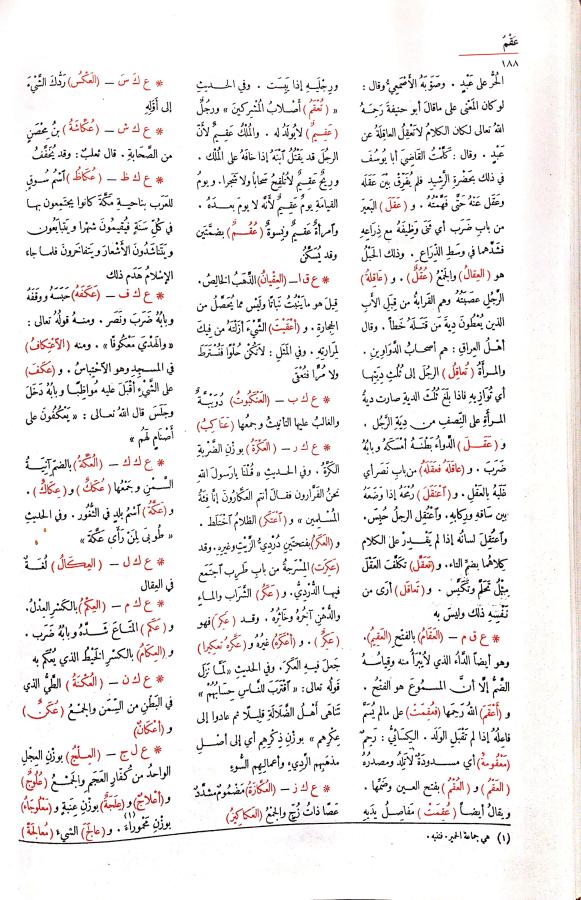 عَقْمُ
١٨٨
الحُرُّ على عَبْدٍ . وصَوَّبَهُ الأَصْمَعِيُّ وقال :
لو كان المَعْنَى على ماقال أبو حنيفةَ رَحِمَهُ
اللهُ تعالى لكان الكلامُ لاتَعْقِلُ العاقِلَةُ عن
عَبْدٍ . وقال : كَلَّمْتُ القَاضِيَ أبا يُوسُفَ
في ذلك بحَضْرةِ الرَّشِيد فلم يُفَرِّقْ بَيْنَ عَقَلَه
وعَقَلَ عَنْهُ حَتَّى فَهَّمْتُهُ . و ( عَقَلَ ) البَعِيرَ
من باب ضَرَبَ أي ثَنَى وَظِيفَهُ مع ذِراعِهِ
فشَدَّهما في وسَطِ الذِّرَاعِ . وذلك الحَبْلُ
هو ( العِقالُ ) والجَمْعُ ( عُقُلٌ ) . و ( عاقِلةُ )
الرَّجُلِ عَصَبَتُهُ وهم القَرابةُ من قِبَلِ الأَبِ
الذين يُعْطُون دِيةَ من قَتَلَهُ خَطَأً . وقال
أَهْلُ العِراق : هم أصحابُ الدَّوَاوِينِ .
والمرأةُ ( تُعَاقِلُ ) الرجُلَ إلى ثُلُثِ دِيَتِها
أي تُوَازِيهِ فاذا بلغَ ثُلُثَ الديةِ صارت ديةُ
المرأةِ على النِّصفِ من ديةِ الرَّجُلِ .
و ( عَقَلَ ) الدَّواءُ بَطْنَهُ أمْسَكَهُ وبابُهُ
ضَرَبَ . و ( عاقَلَهُ فعَقَلَهُ ) من باب نَصَر أي
غَلَبَهُ بالعَقْلِ . و ( اعْتَقَلَ ) رُمْحَهُ إذا وَضَعَهُ
بين ساقِه ورِكابِه . وآعْتُقِلَ الرجلُ حُبِسَ.
وآعتُقِلَ لسانُه إذا لم يَقْدِرْ على الكلامِ
كِلاهُما بضم التاء . و ( تَعَقَّلَ ) تَكَلَّفَ العَقْلَ
مِثْلُ تَحَلَّمَ وتَكَيَّسَ . و ( تَعاقَلَ ) أرى من
نَفْسِهِ ذلك وليسَ بِه
* ع ق م – ( العَقَامُ ) بالفتحِ ( العَقِيمُ ) .
وهو أيضا الدَّاءُ الذي لا يُبْرَأُ منه وقِياسُهُ
الضمّ إلا أنَّ المسموعَ هو الفتحُ .
و ( أعْقَمَ ) اللهُ رَحِمَها ( فعُقِمَتْ ) على مالم يُسَمَّ
فاعِلُهُ إذا لم تَقْبَلِ الولَدَ . الكِسَائِيُّ : رَحِمٌ
( مَعْقُومةٌ ) أي مسدودةٌ لا تَلِدُ ومصدرُه
( العَقْمُ ) و ( العُقْمُ ) بفتحِ العينِ وضَمِّها .
ويقالُ أيضاً ( عُقِمَتْ ) مَفَاصِلُ يدَيهِ
ورِجْلَيهِ إذا يَبِسَت . وفي الحديثِ
« ( تُعْقَمُ ) أصْلابُ المُشْرِكينَ » ورجُلٌ
( عَقِيمٌ ) لايُولَدُ له . والمُلْكُ عَقِيمٌ لأَنَّ
الرجُلَ قد يَقْتُلُ آبْنَهُ إذا خافَهُ على المُلْكِ .
ورِيحٌ عَقِيمٌ لا تُلْقِحُ سَحَاباً ولا شَجَرا . ويومُ
القِيامةِ يومٌ عَقِيمٌ لأنَّهُ لا يومَ بعدَهُ .
وآمرأةٌ عَقِيمٌ ونِسوةٌ ( عُقُمٌ ) بضمَّتَين
وقد يُسَكَّنُ
* ع ق ا – ( العِقْيانُ ) الذَّهَبُ الخالِصُ .
قيل هو مايَنْبُتُ نَبَاتًا ولَيْس مما يُحَصَّلُ من
الحِجارةِ . و ( أَعْقَيْتَ ) الشَّيْءَ أَزَلْتَهُ من فِيكَ
لمَرارتِهِ . وفي المَثَلِ : لاتَكُنْ حُلْوًا فتُسْتَرَطَ
ولا مُرًّا فتُعْقَى
* ع ك ب – ( العَنْكَبُوتُ ) دُوَيْبَّةٌ
والغالِبُ عليها التأنيثُ وجمعُها ( عَنَاكِبُ )
* ع ك ر – ( العَكْرَةُ ) بوَزْنِ الضَّربةِ
الكَرَّةُ . وفي الحديثِ « قُلْنا يارسولَ اللهِ
نحنُ الفَرَّارون فقالَ أنتم العَكَّارُونَ إنَّا فِئَةُ
المُسلمين » و ( آعتَكَرَ ) الظلامُ آختَلَط .
و ( العَكَرُ ) بفتحتين دُرْدِيُّ الزَّيْتِ وغيرِهِ. وقد
( عَكِرَتِ ) المِسْرَجةُ من باب طَرِبَ آجتَمَع
فيها الدُّرْدِيُّ . و ( عَكَرُ ) الشَّرابِ والماءِ
والدُّهْنِ آخِرُهُ وخاثِرُهُ . وقد ( عَكِرَ ) فهو
( عَكِرٌ ) . و ( أَعْكَرَهُ ) غيرُه و ( عَكَّرَهُ تَعْكِيرا )
جَعَلَ فيهِ العَكَرَ . وفي الحديثِ « لَمَّا نَزَلَ
قولُه تعالى: «آقْتَرَبَ للنَّاسِ حِسَابُهُمْ »
تَنَاهَى أَهْلُ الضَّلالةِ قَلِيلًا ثم عادوا إلى
عِكْرِهِم » بوزنِ ذِكْرِهِم أي إلى أصْلِ
مذهبِهم الرَّدِيءِ وأعمالِهم السُّوءِ
* ع ك ز – ( العُكَّازَةُ ) مَضْمُومٌ مشدَّدٌ
عَصًا ذاتُ زُجٍّ والجَمْعُ ( العَكاكِيزُ )
* ع ك س – ( العَكْسُ ) رَدُّكَ الشَّيْءَ
إلى أوّلِهِ
* ع ك ش – ( عُكَّاشَةُ ) بنُ مِحْصَنٍ
من الصَّحابةِ . قال ثَعلبٌ : وقد يُخَفَّفُ
* ع ك ظ – ( عُكَاظُ ) آسْمُ سُوقٍ
للعَرَبِ بناحيةِ مَكَّةَ كانوا يَجتمعون بها
في كلِّ سَنةٍ فيُقِيمونَ شَهْرا ويَتَبايَعُون
ويَتَناشَدُونَ الأَشْعارَ ويَتفاخَرونَ فلما جاء
الإسْلامُ هَدَم ذلك
* ع ك ف – ( عَكَفَهُ ) حَبَسَهُ ووَقَفَهُ
وبابُهُ ضَرَبَ ونَصَر . ومنهُ قولُهُ تعالى :
« والهَدْيَ مَعْكُوفًا » . ومنه ( الاعْتِكافُ )
في المسجِدِ وهو الاحْتِباسُ . و ( عَكَفَ )
على الشَّيْءِ أقْبَلَ عليه مُوَاظِبًا وبابُهُ دَخَلَ
وجلَسَ قال اللهُ تعالى : « يَعْكُفُونَ على
أَصْنَامٍ لَهُم »
* ع ك ك – ( العُكَّةُ ) بالضمِ آنِيَةُ
السَّمْنِ وجَمْعُها ( عُكَكٌ ) و ( عِكَاكٌ ) .
و ( عَكَّةُ ) آسْمُ بلدٍ في الثُّغُورِ . وفي الحديثِ
« طُوبَى لِمَنْ رَأَى عَكَّةَ »
* ع ك ل – ( العِكَالُ ) لُغَةٌ
في العِقال
* ع ك م – ( العِكْمُ ) بالكَسْرِ العِدْلُ.
و ( عَكَمَ ) المَتاعَ شَدَّهُ وبابُهُ ضَرَبَ .
و ( العِكامُ ) بالكَسْرِ الخَيْطُ الذي يُعْكَمُ به
* ع ك ن – ( العُكْنَةُ ) الطَّيُّ الذي
في البَطنِ من السِّمَنِ والجمعُ ( عُكَنٌ )
و ( أَعْكَانٌ )
* ع ل ج – ( العِلْجُ ) بوزنِ العِجْلِ
الواحدُ من كُفَّارِ العَجَمِ والجَمْعُ ( عُلُوجٌ )
و ( أَعْلاجٌ ) و ( عِلَجَةٌ ) بوزنِ عِنَبةٍ و ( مَعْلُوجَاءُ )
بوزْنِ مَحْمُوراءَ (١) . و ( عالَجَ ) الشيءَ ( مُعالَجَةً )
(١) هي جماعة الحمير. فتنبه .